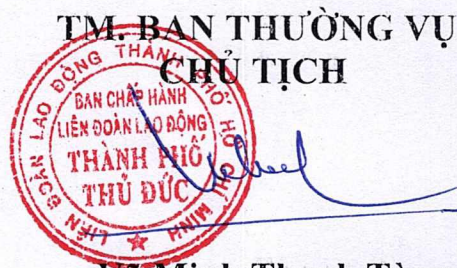 TM. BAN THƯỜNG VỤ
CHỦ TỊCH
LIÊN ĐOÀN LAO ĐỘNG THÀNH PHỐ HỒ CHÍ MINH
BAN CHẤP HÀNH
LIÊN ĐOÀN LAO ĐỘNG
THÀNH PHỐ
THỦ ĐỨC
Minh Thanh